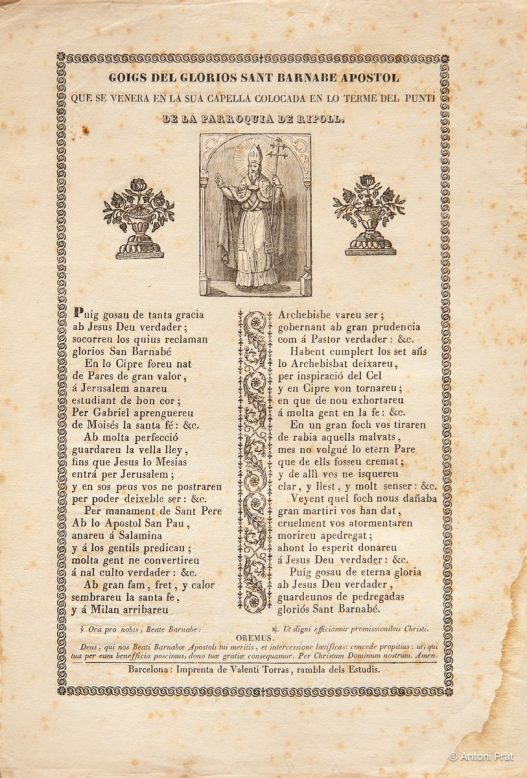 GOIGS DEL GLORIOS SANT BARNABE APOSTOL
QUE SE VENERA EN LA SUA CAPELLA COLOCADA EN LO TERME DEL PUNTI
DE LA PARROQUIA DE RIPOLL.
Puig gosau de tanta gracia
ab Jesus Deu verdader;
socorreu los quius reclaman
glorios San Barnabé
En lo Cipre foreu nat
de Pares de gran valor,
á Jerusalem anareu
estudiant de bon cor;
Per Gabriel aprenguereu
de Moisés la santa fé: &c.
Ab molta perfecció
guardareu la vella lley,
fins que Jesus lo Mesias
entrá per Jerusalem;
y en sos peus vos ne postrareu
per poder deixeble ser: &c.
Per manament de Sant Pere
Ab lo Apostol San Pau,
anareu á Salamina
y á los gentils predicau;
molta gent ne convertireu
á nal culto verdader: &c.
Ab gran fam, fret, y calor
sembrareu la santa fe,
y á Milan arribareu
Archebisbe vareu ser;
gobernant ab gran prudencia
com á Pastor verdader: &c.
Habent cumplert los set añs
lo Archebisbat deixareu,
per inspiració del Cel
y en Cipre von tornareu;
en que de nou exhortareu
á molta gent en la fe: &c.
En un gran foch vos tiraren
de rabia aquells malvats,
mes no volgué lo etern Pare
que de ells fosseu cremat;
y de allí vos ne isquereu
clar, y llest, y molt senser: &c.
Veyent quel foch nous dañaba
gran martiri vos han dat,
cruelment vos atormentaren
morireu apedregat;
ahont lo esperit donareu
á Jesus Deu verdader: &c.
Puig gosau de eterna gloria
ab Jesus Deu verdader,
guardeunos de pedregadas
gloriós Sant Barnabé.
℣ Ora pro nobis, Beate Barnabe: ℟. Ut digni efficiamur promissionibus Christi.
OREMUS.
Deus, qui nos Beati Barnabæ Apostoli tui meritis, et intercessione lætificas: concede propitius: ut, qui
tua per eum beneficia poscimus, dono tuæ gratiæ consequamur. Per Christum Dominum nostrum. Amen.
Barcelona: Imprenta de Valenti Torras, rambla dels Estudis.
© Antoni Prat